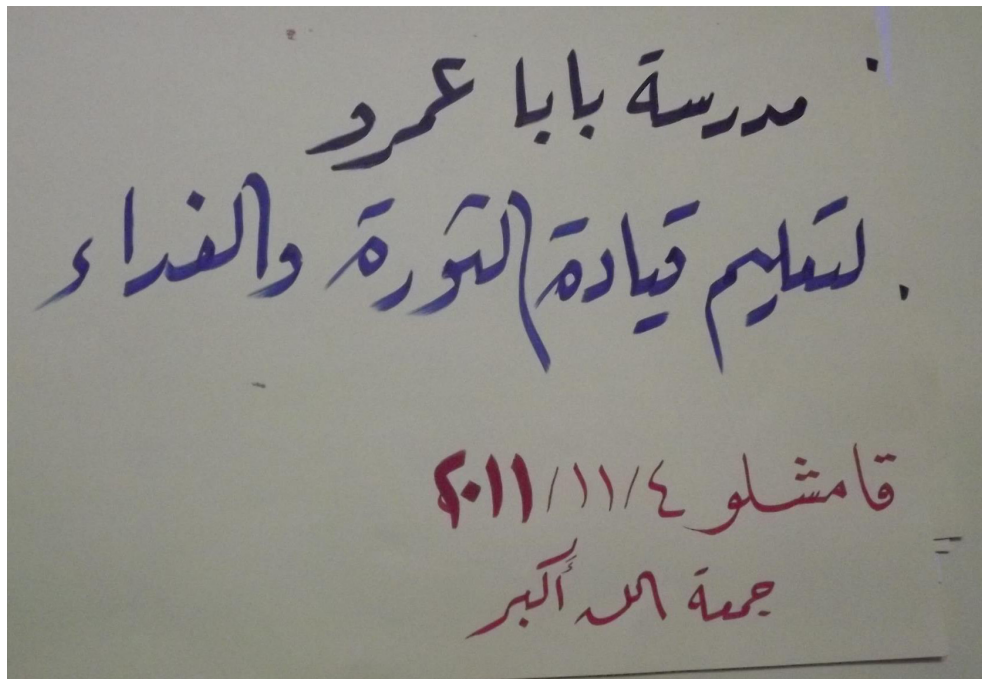 مدرسة بابا عمرو
لتعليم قيادة الثورة والفداء
قامشلو ٢٠١١/١١/٤
جمعة الله أكبر